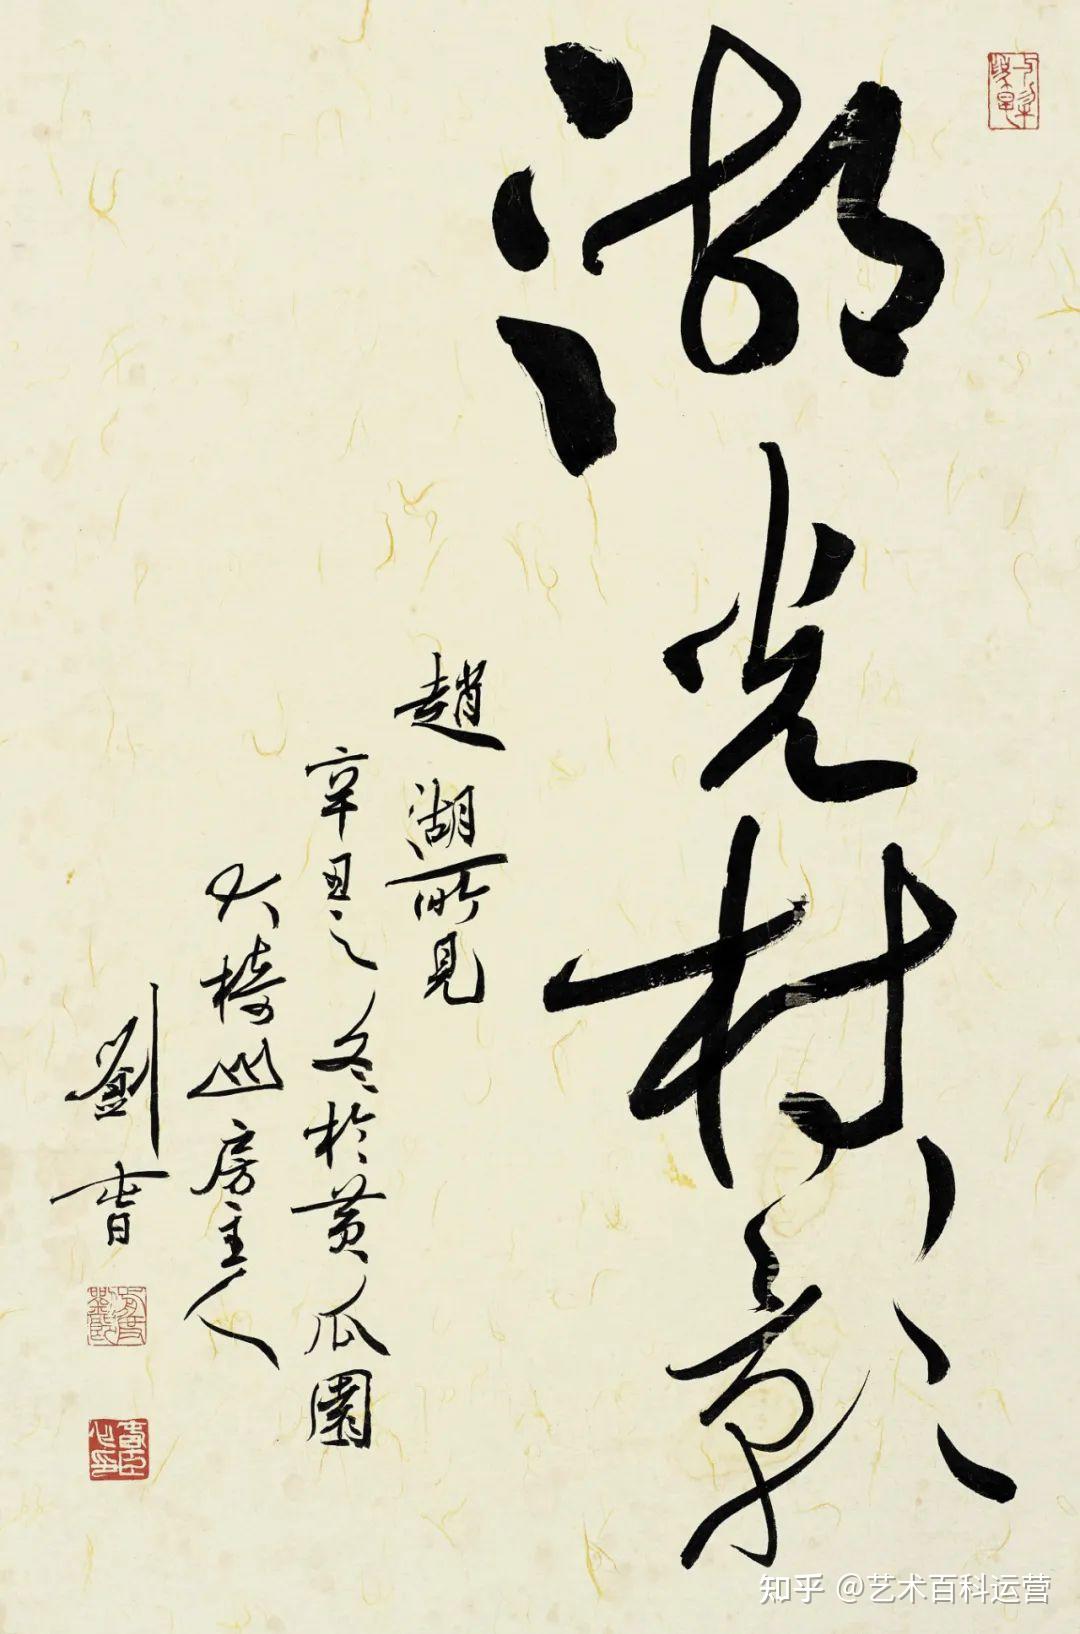 湖光村影
趙湖所見
辛丑之冬於黃瓜園
大椅山房主人
劉旾
知乎 @艺术百科运营